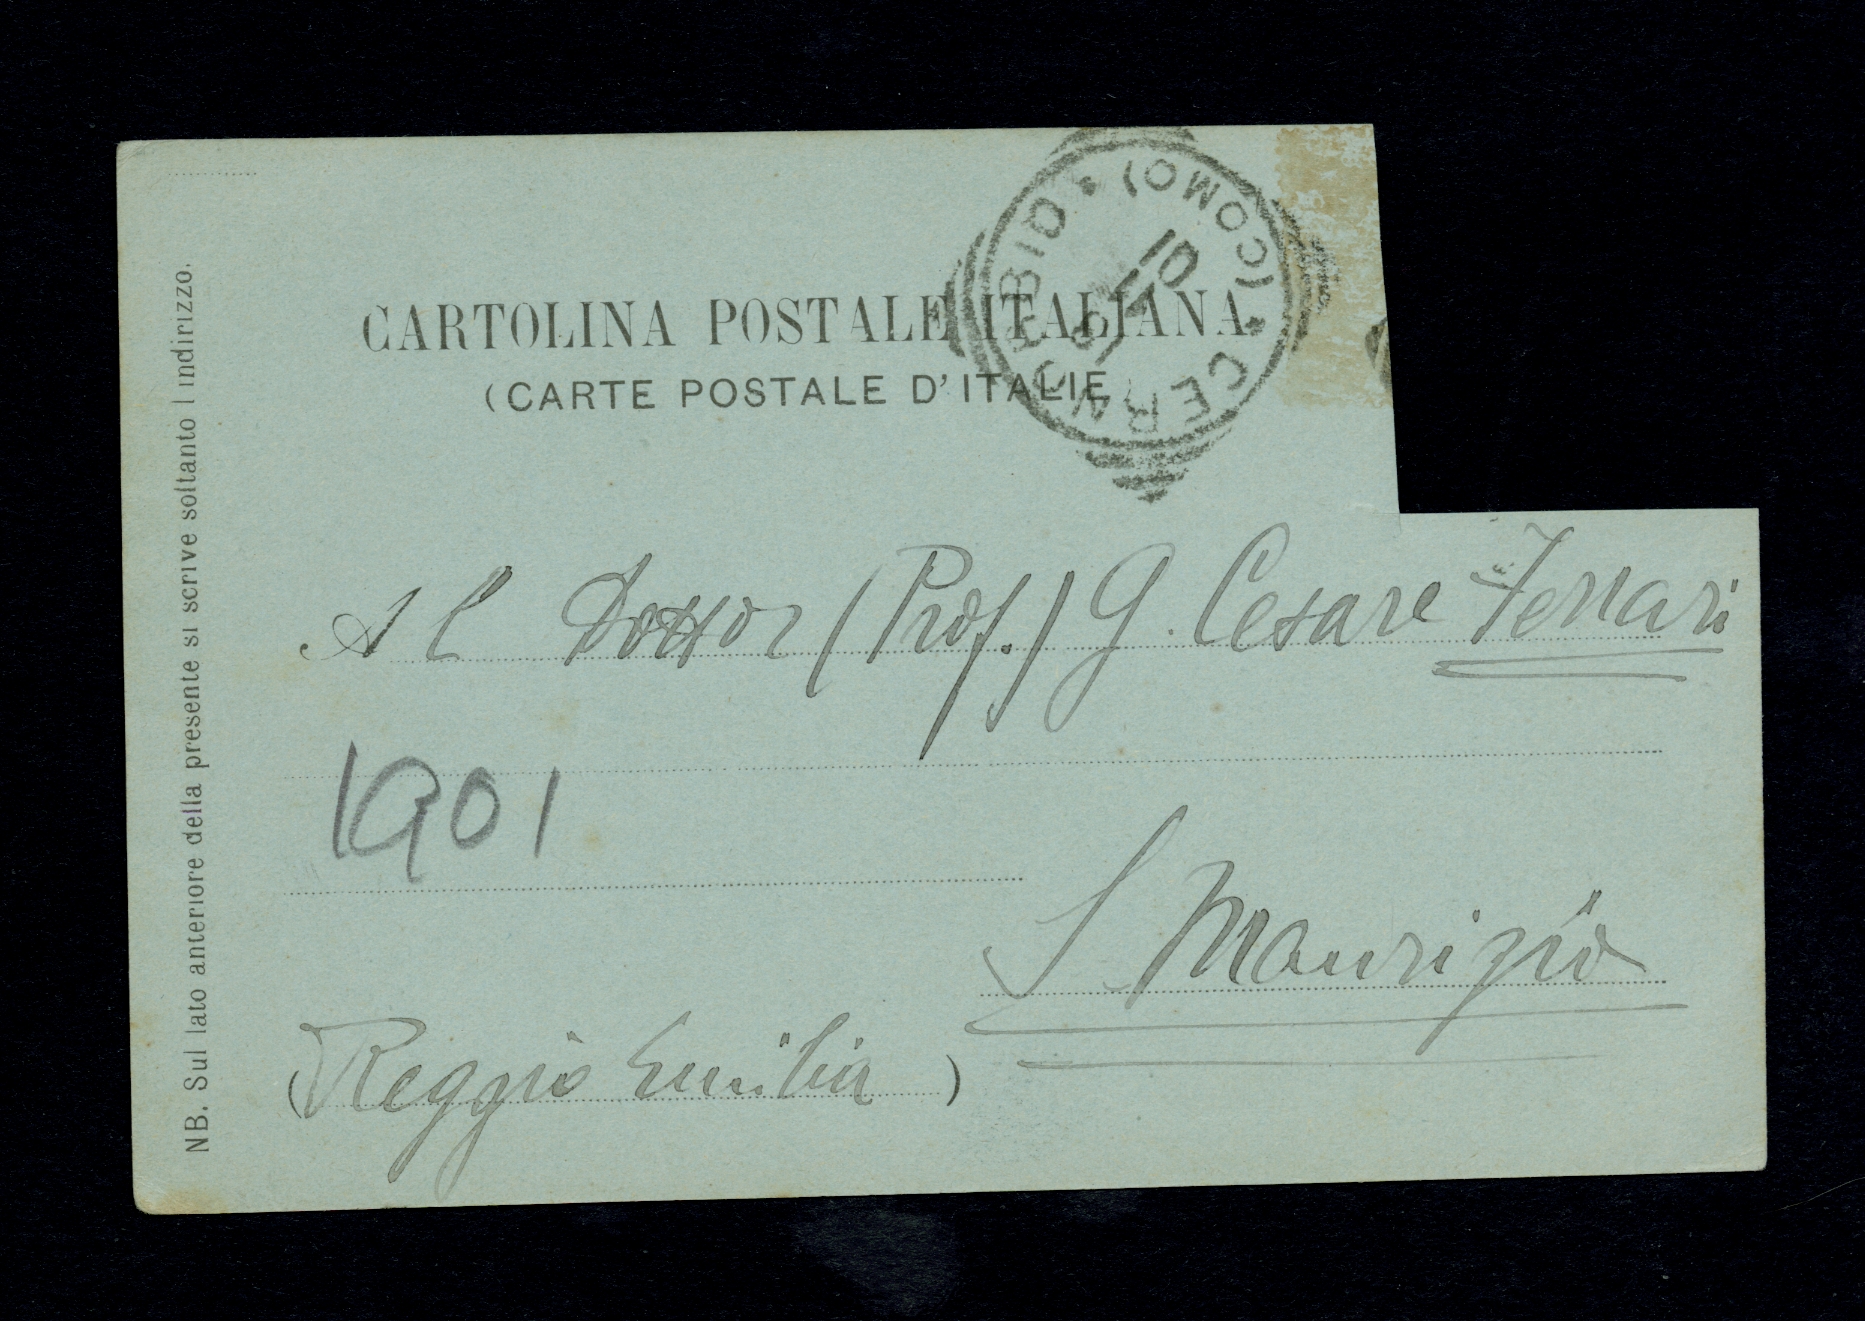 CARTOLINA POSTALE ITALIANA
(CARTE POSTALE D'ITALIE
CERNOBBIO * (COMO) *
01
Al Dottor (Prof.) G. Cesare Ferrari
1901
S. Maurizio
(Reggio Emilia)
NB. Sul lato anteriore della presente si scrive soltanto l indirizzo.